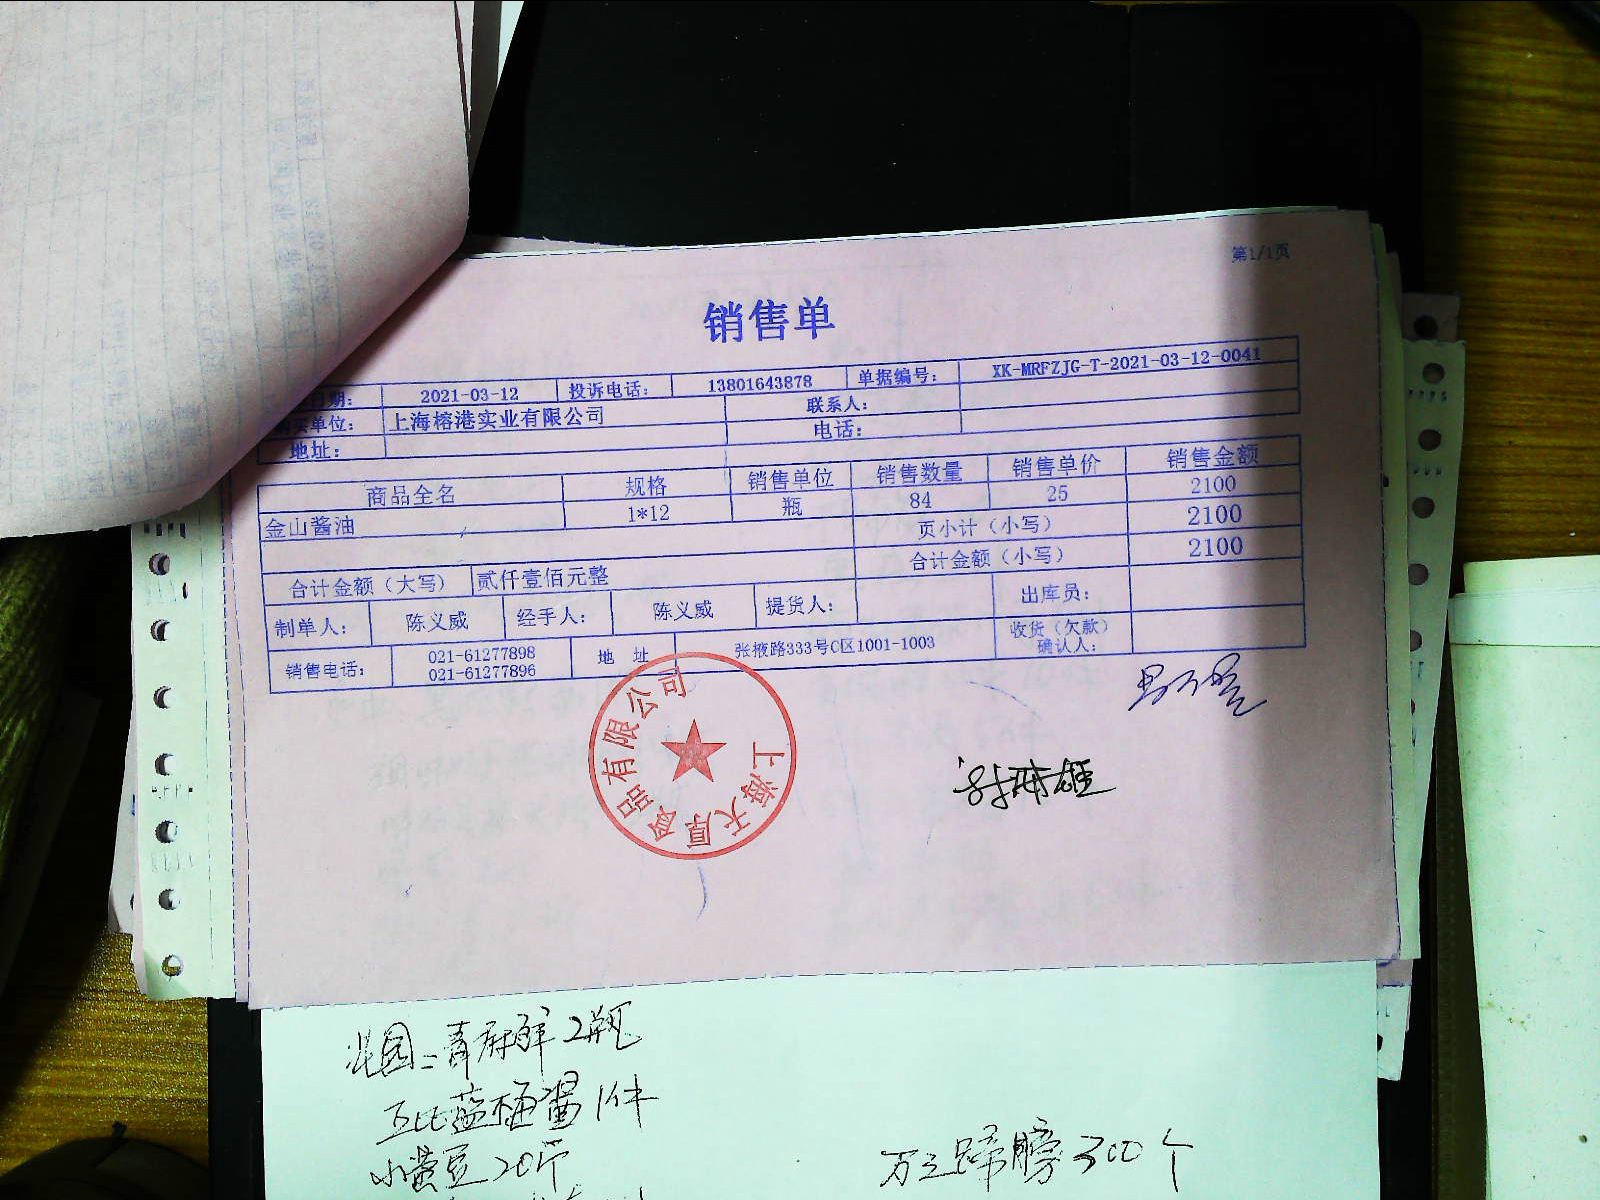 第1/1页
销售单
日期： 2021-03-12 投诉电话： 13801643878 单据编号： XK-MRFZJG-T-2021-03-12-0041
购买单位： 上海榕港实业有限公司 联系人：
地址： 电话：
商品全名 规格 销售单位 销售数量 销售单价 销售金额
金山酱油 1*12 瓶 84 25 2100
页小计（小写） 2100
合计金额（小写） 2100
合计金额（大写） 贰仟壹佰元整
制单人： 陈义威 经手人： 陈义威 提货人： 出库员：
销售电话： 021-61277898 021-61277896 地 址 张掖路333号C区1001-1003 收货（欠款）确认人：
上海天厚食品有限公司
2瓶
1件
小黄豆20斤
300个